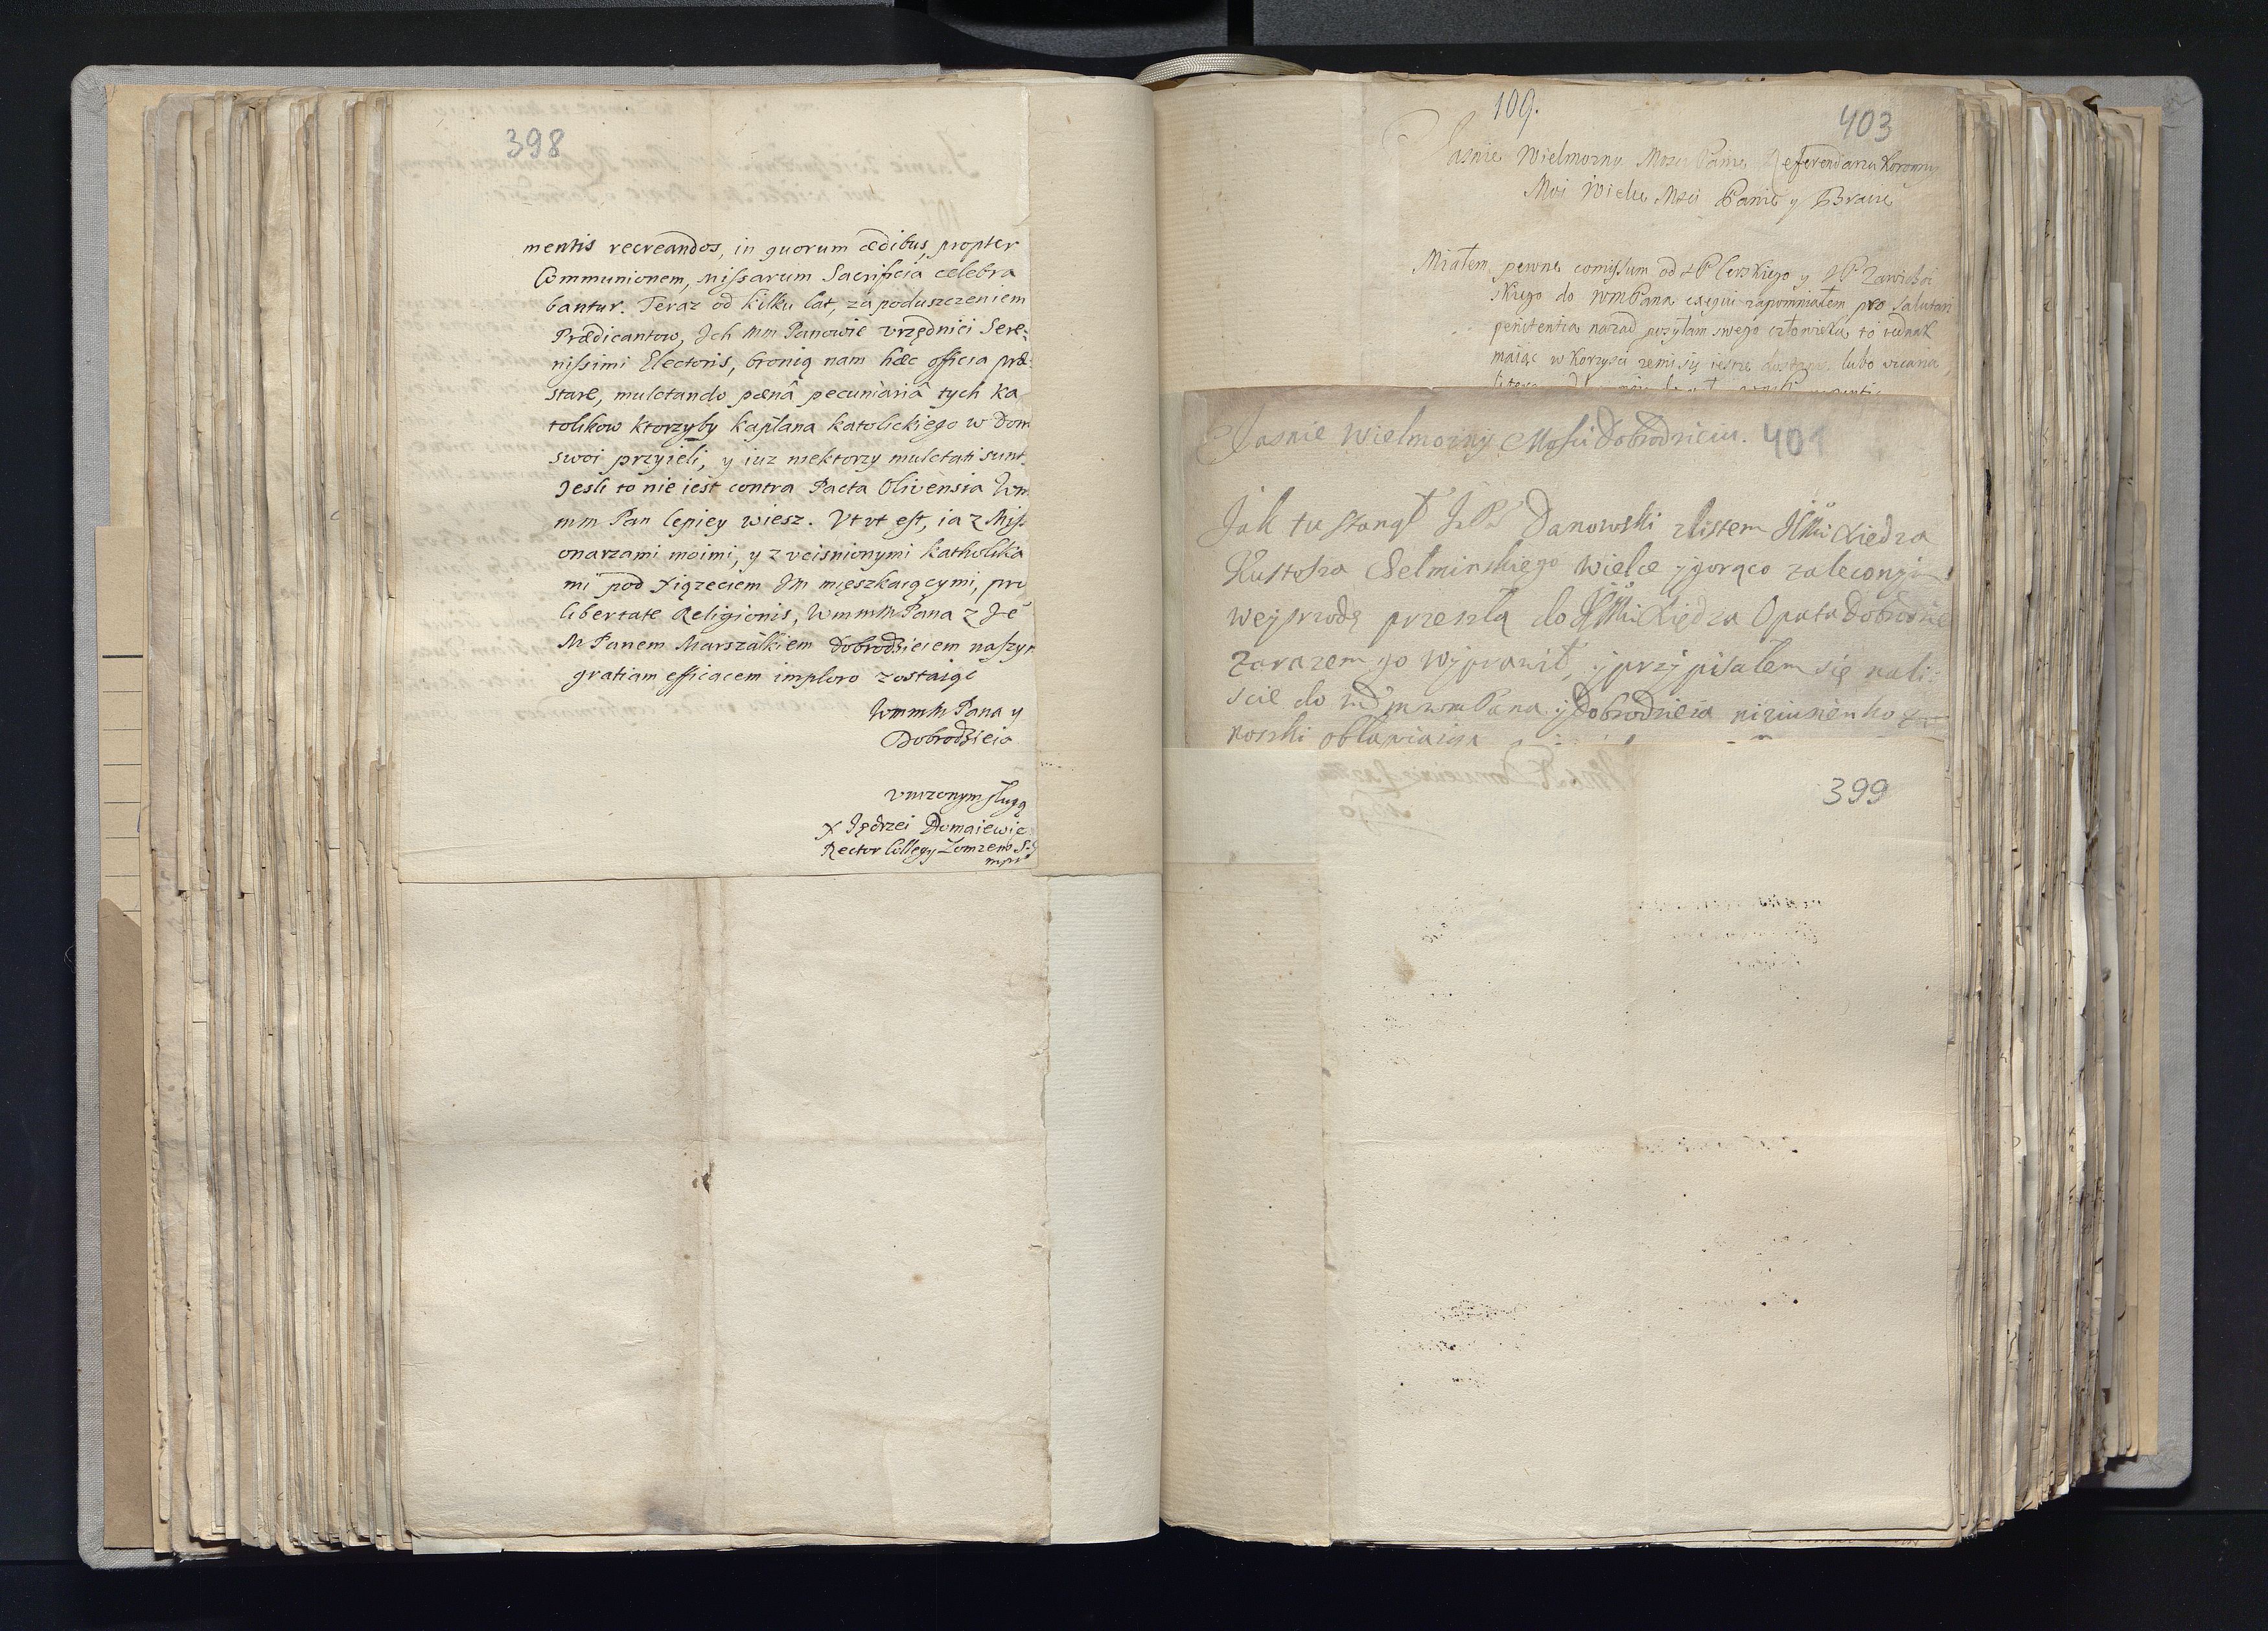 398
mentis recreandos, in quorum ædibus, propter
Communionem, Missarum Sacrificia celebra
bantur. Teraz od kilku lat, za poduszczeniem
Prædicantow, Ich Mm Panowie vrzędnici Sere-
nissimi Electoris, bronią nam hæc officia præ-
stare, mulctando pœnâ pecuniariâ tych ka
tolikow ktorzyby kapłana katolickiego w dom
swoi przyieli, y iuz niektorzy mulctati sunt.
Jesli to nie iest contra Pacta Olivensia Wm
mm Pan lepiey wiesz. Vt vt est, ia z Missi
onarzami moimi, y z vcisnionymi katholika
mi pod Xiązęciem Im mięszkaiącymi, pro
libertate Religionis, WmmM Pana z Je
M Panem Marszałkiem Dobrodzieiem naszym
gratiam efficacem imploro zostaiąc
WmmM Pana y
Dobrodzieia
vnizonym sługą
X Jędrzei Domaiewic
Rector Collegy Lomzen S.J
mpr
109.
403
Jasnie Wielmozny Mosci Panie Referendarzu Koronny
Moi Wielce Mosci Panie y Bracie
Miałem pewne comissum od JP Cerskiego y JP Zawichoi
skiego do WmPana czego zapomniałem pro salutari
penitentia nazad posyłam swego człowieka to iednak
maiąc w korzysci ze mi się ieszcze lubo
Jasnie Wielmozny Mosci Dobrodzieiu. 401
Jak tu stanął JP Danowski z listem Xiedza
Kustosza Chelminskiego wielce y gorąco zaleconym
wey przodę przeszłą do Xiędza Opata Dobrodzie
Zarazem go wyprawił, y przypisałem się na li-
scie do Pana y Dobrodzieia niziusienko
399